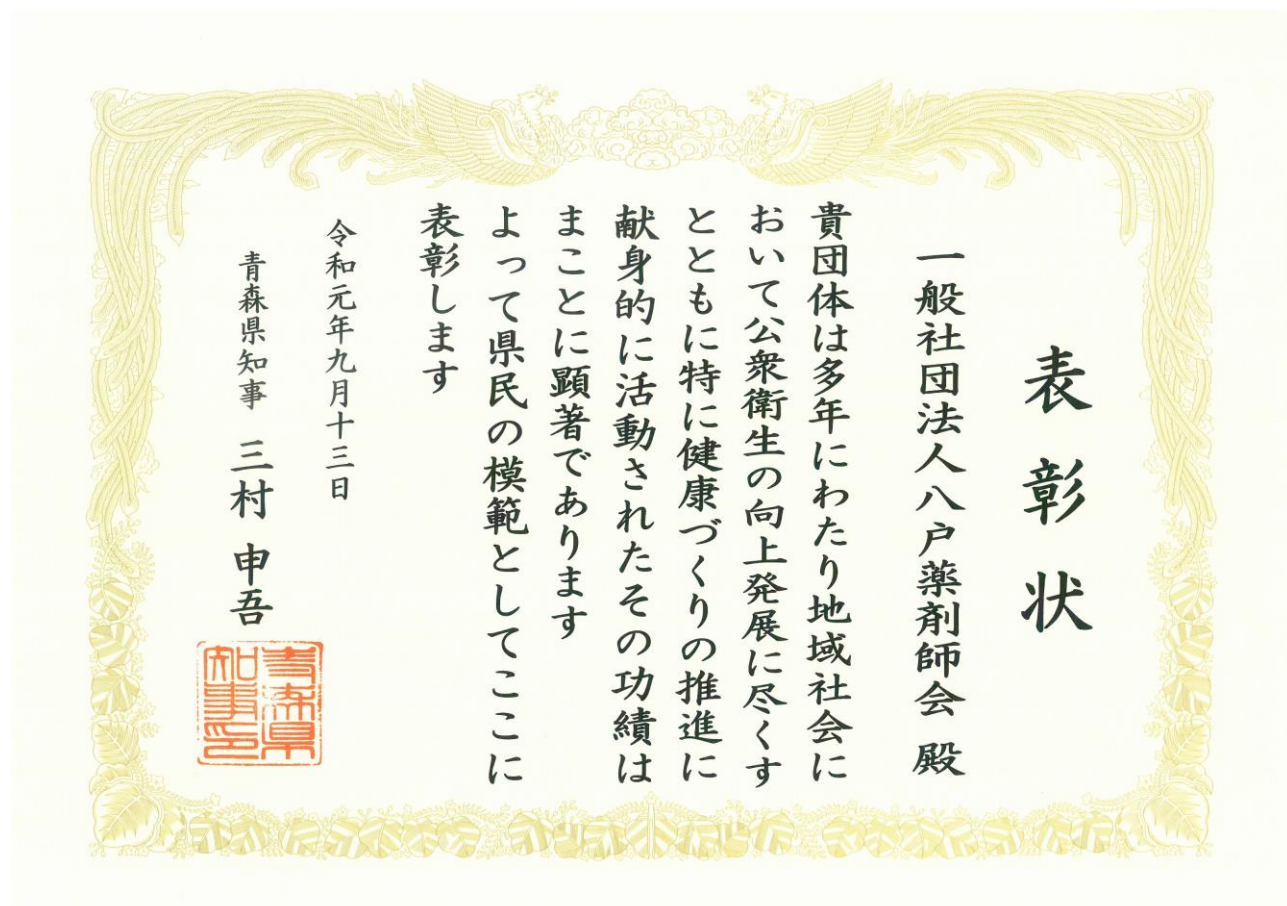 表彰状
一般社団法人八戸薬剤師会 殿
貴団体は多年にわたり地域社会に
おいて公衆衛生の向上発展に尽くす
とともに特に健康づくりの推進に
献身的に活動されたその功績は
まことに顕著であります
よって県民の模範としてここに
表彰します
令和元年九月十三日
青森県知事 三村 申吾
青森県
知事印